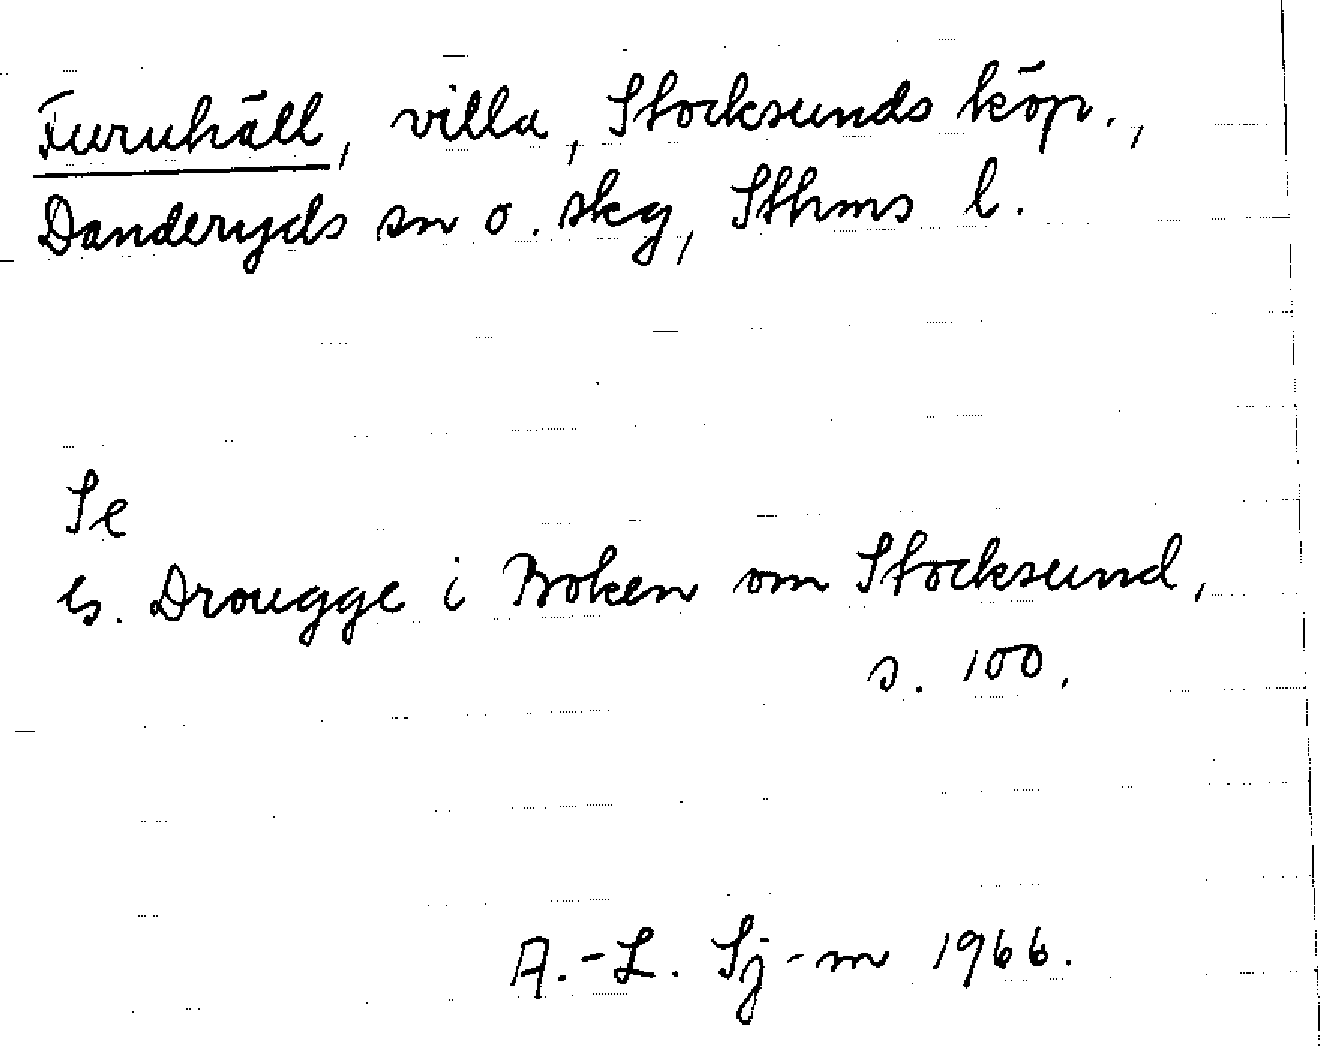 Furuhäll, villa, Stocksunds köp.,
Danderyds sn o. skg, Sthms l.
Se
G. Drougge i Boken om Stocksund,
s. 100.
A.-L. Sj-m 1966.